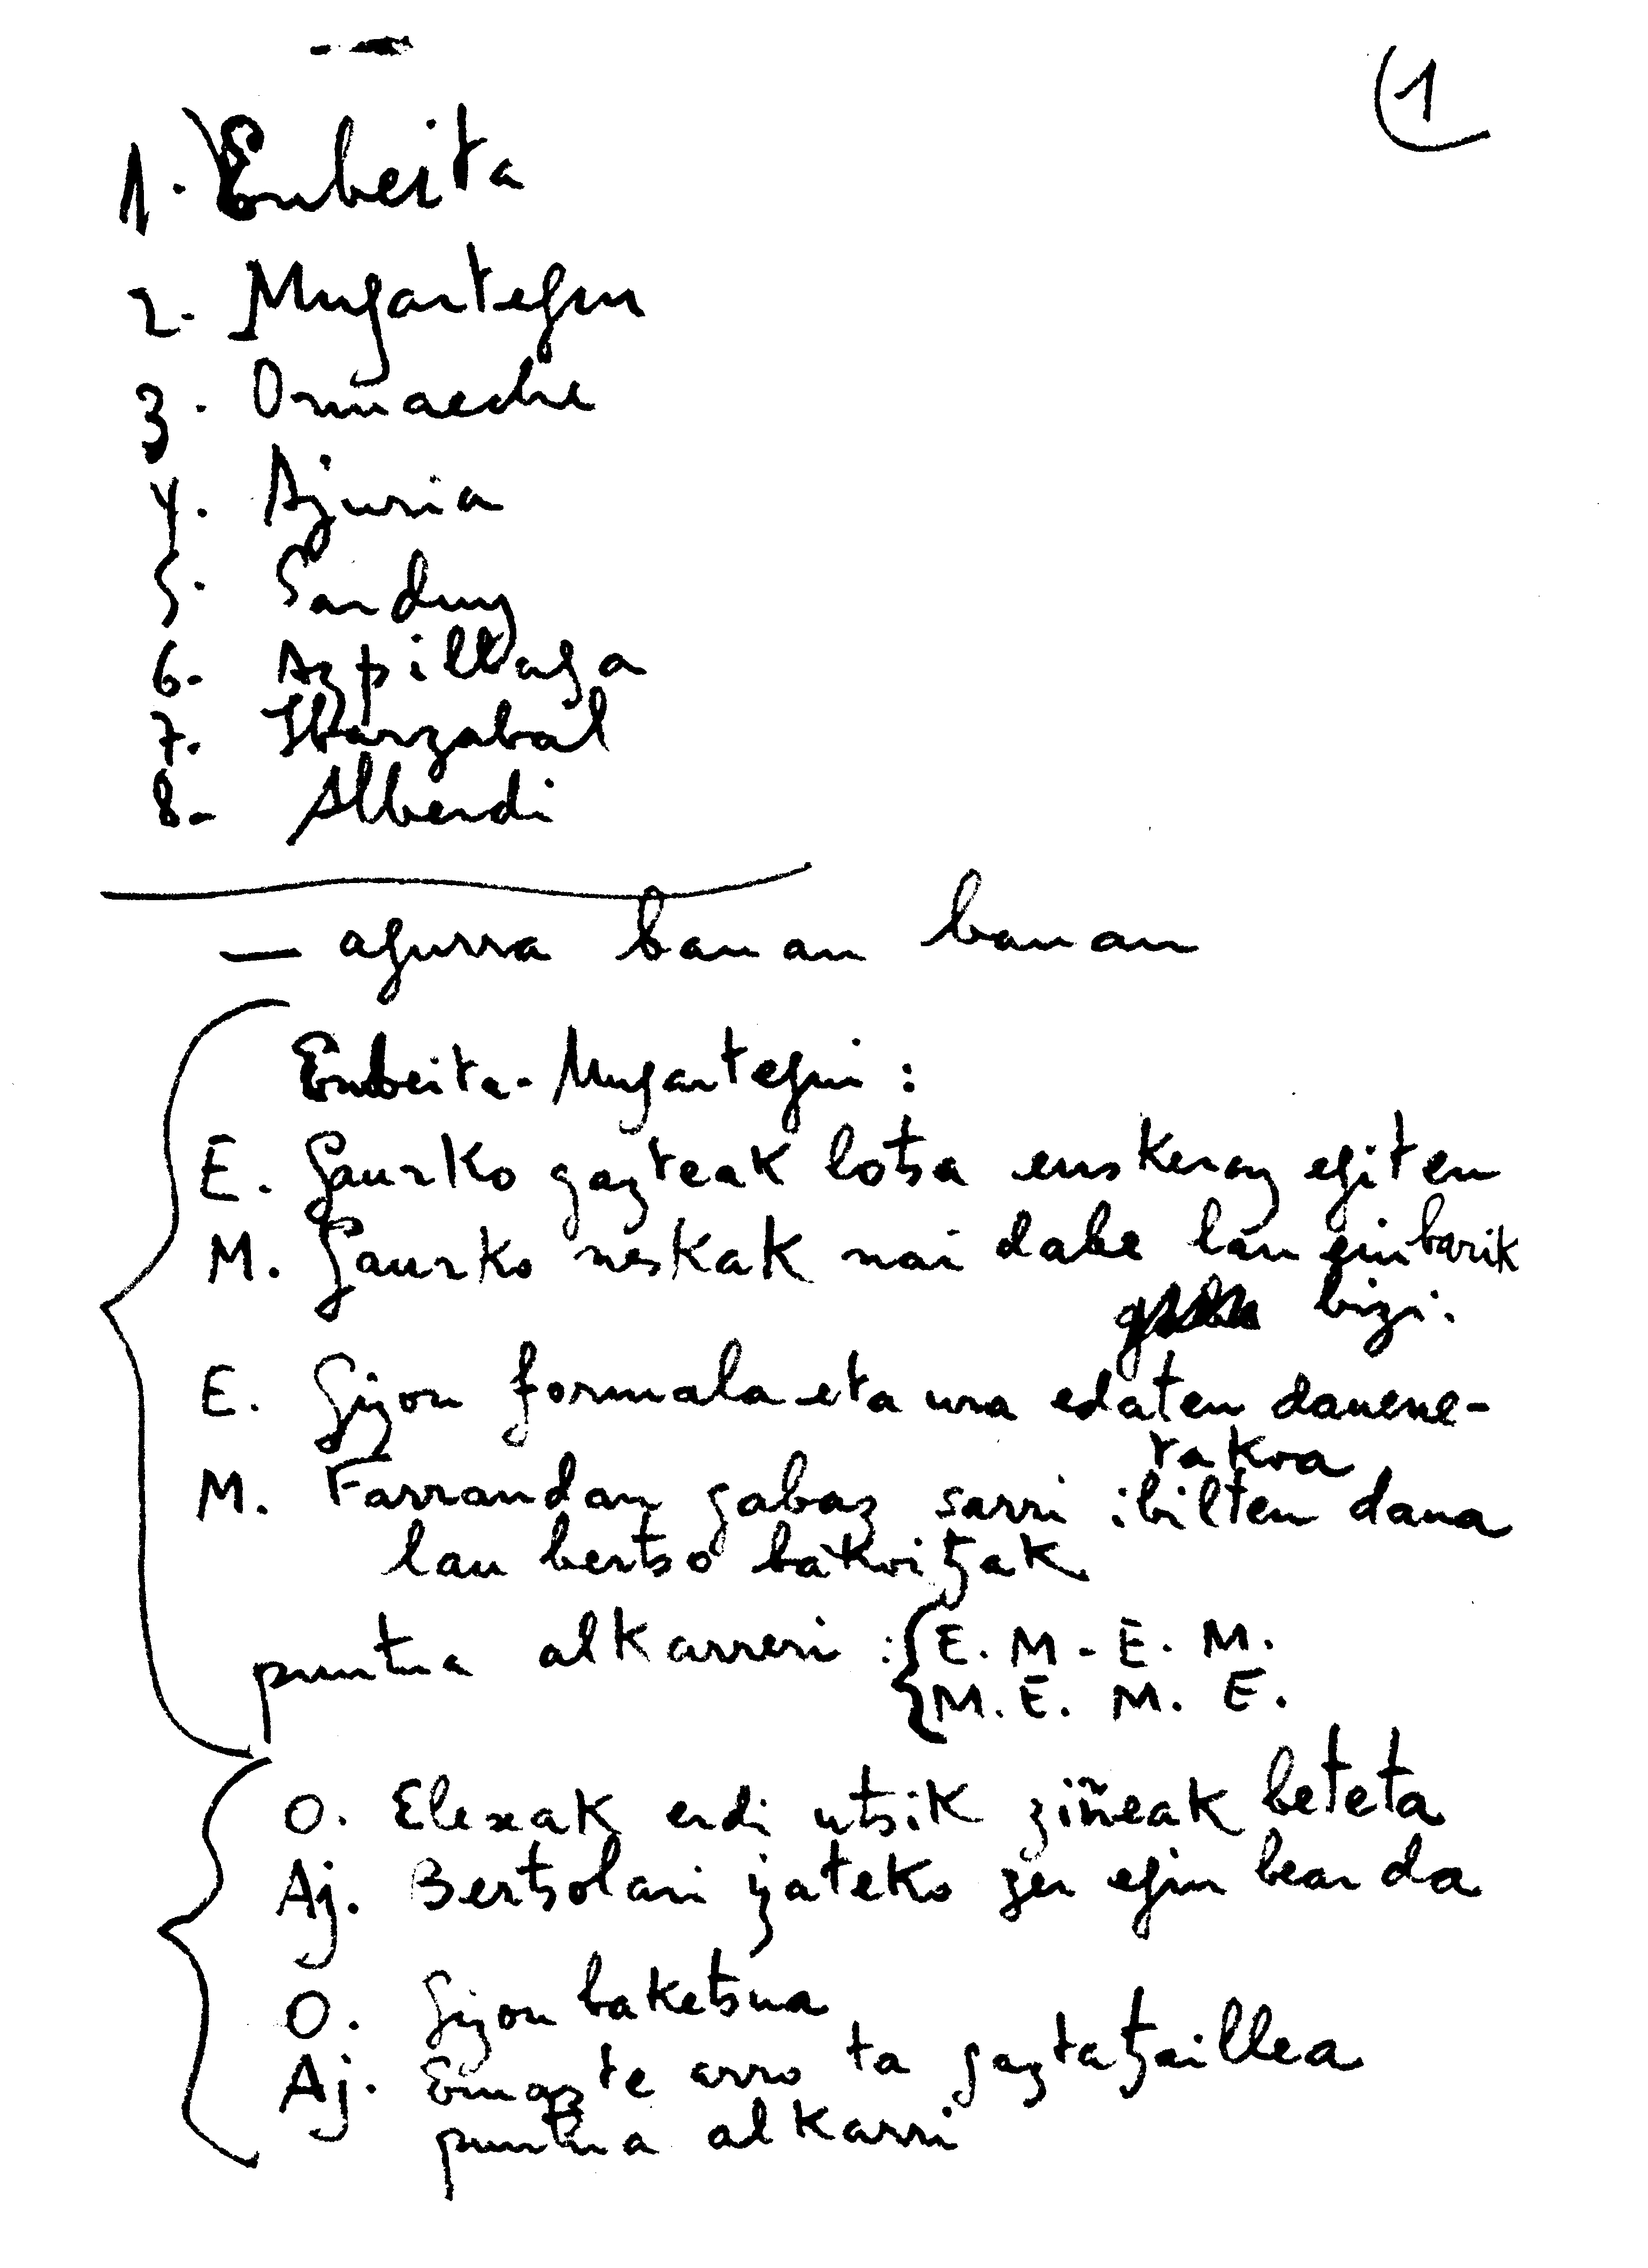 1
1. Enbeita
2. Mugartegui
3. Ormaeche
4. Ajuria
5. Sanduy
6. Azpillaga
7. Ibarzabal
8. Alberdi
— agurra banan banan
Enbeita - Mugartegui :
E. Gaurko gazteak lotsa euskeraz egiten
M. Gaurko neskak nai dabe lan ein barik
bizi.
E. Gizon formala eta ura edaten danene-
takoa
M. Farrandan gabaz sarri ibilten dana
lau bertso bakoitzak
puntua alkarreri : E. M - E. M.
M. E. M. E.
O. Elexak erdi utsik ziñeak beteta
Aj. Bertsolari izateko zer egin bear da
O. Gizon baketsua
Aj. Emazte arro ta gaztatzaillea
puntua alkarri